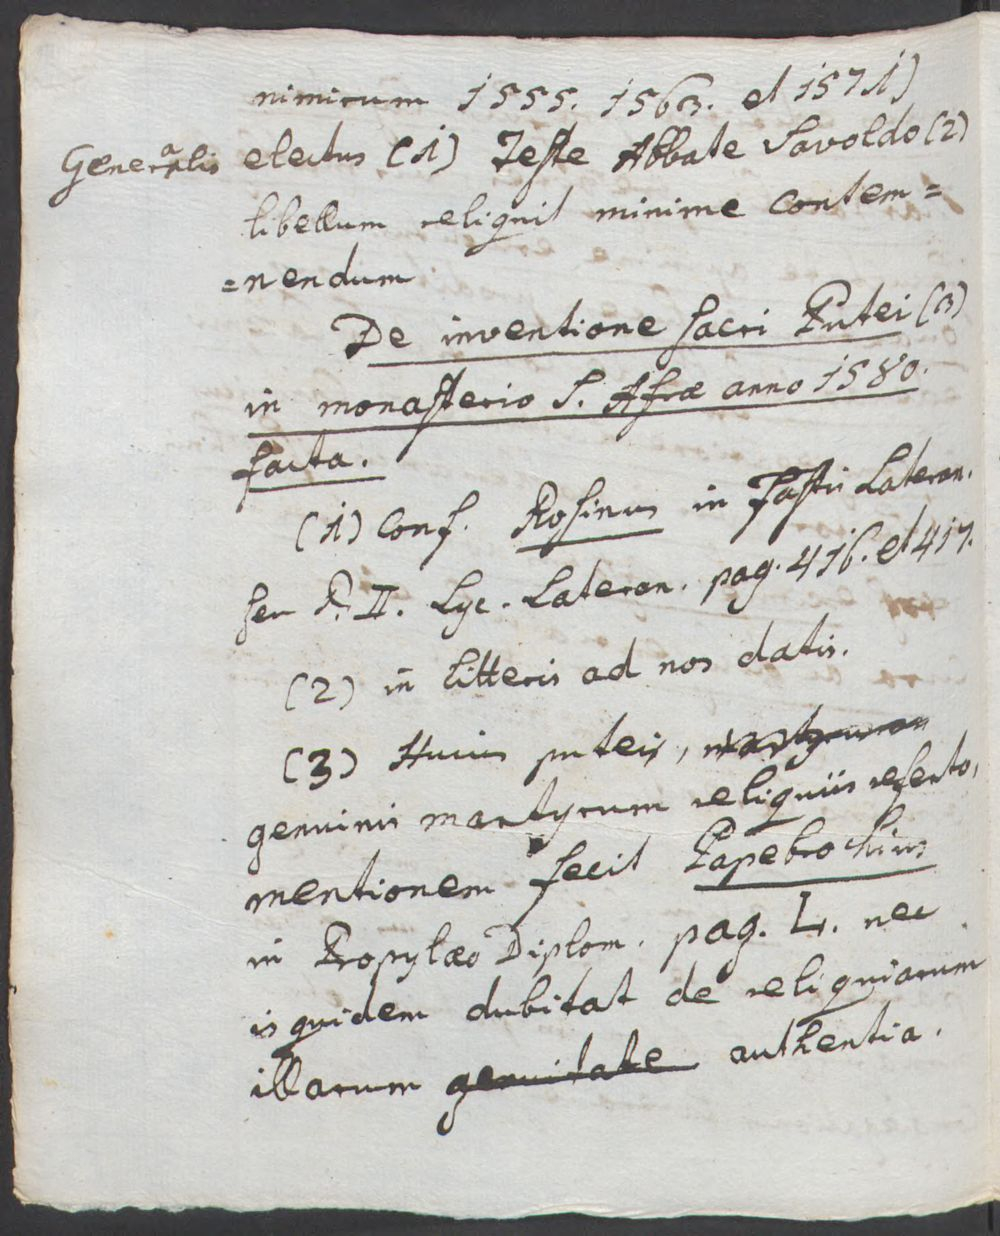 nimirum 1555. 1563. et 1571)
Generalis electus (1) Teste Abbate Savoldo (2)
libellum reliquit minime contem=
=nendum
De inventione sacri Putei (3)
in monasterio S. Afræ anno 1580.
facta.
(1) Conf. Rosinus in Fastis Lateran.
seu P. II. Lyc. Lateran. pag. 416. et 417.
(2) in litteris ad nos datis.
(3) Huius puteis, martyrum
genuinis martyrum reliquiis referto,
mentionem fecit Papebrochius
in Propylæo Diplom. pag. L. nec
is quidem dubitat de reliquiarum
illarum genuitate authentia.